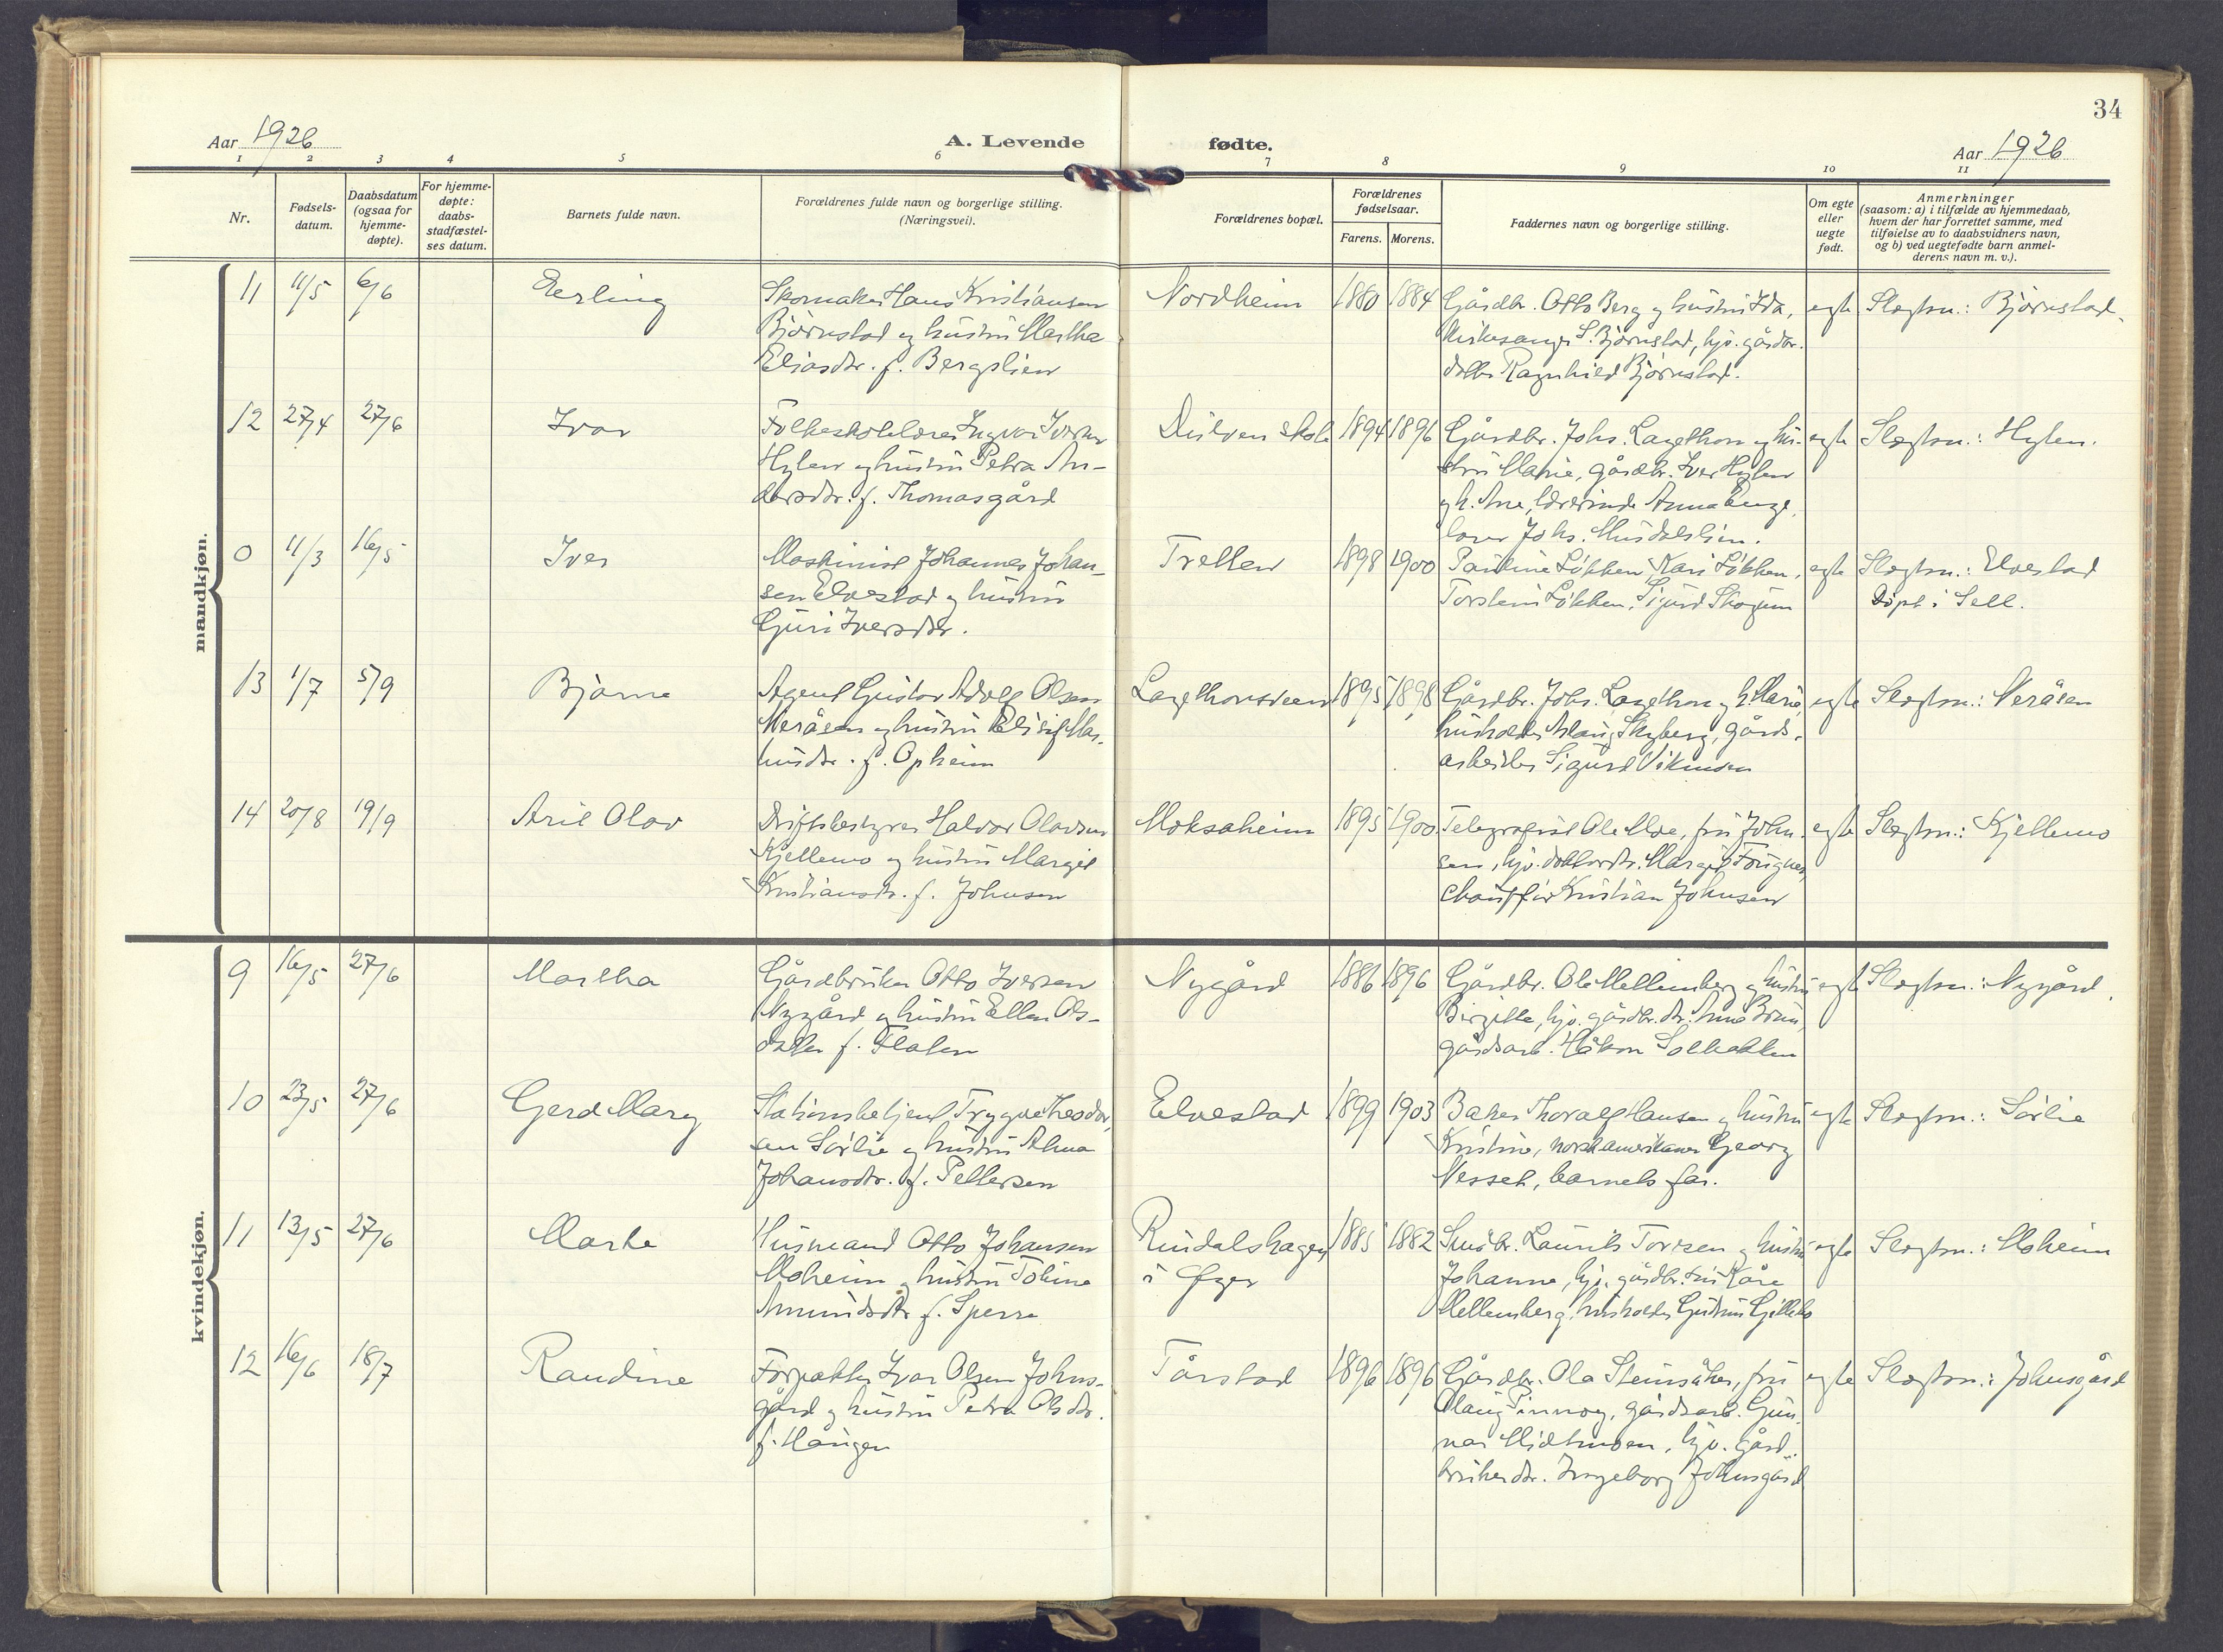 34
Aar 1926
A. Levende fødte.
Aar 1926
1 2 3 4 5 6 7 8 9 10 11
Nr.
Fødsels-
datum.
Daabsdatum
(ogsaa for
hjemme-
døpte).
For hjemme-
døpte:
daabs-
stadfæstel-
ses datum.
Barnets fulde navn.
Forældrenes fulde navn og borgerlige stilling.
(Næringsvei).
Forældrenes bopæl.
Forældrenes
fødselsaar.
Farens. Morens.
Faddernes navn og borgerlige stilling.
Om egte
eller
uegte
født.
Anmerkninger
(saasom: a) i tilfælde av hjemmedaab,
hvem der har forrettet samme, med
tilføielse av to daabsvidners navn,
og b) ved uegtefødte barn anmel-
derens navn m. v.).
mandkjøn.
11 11/5 6/6 Erling
Skomaker Hans Kristiansen
Björnstad og hustru Martha
Eliasdtr. f. Bergslien
Nordheim 1880 1884
Gårdbr. Otto Berg og hustru Ida,
kirkesanger S. Björnstad, hjv. gårdbr.
datter Ragnhild Björnstad.
egte Slegtsn.: Björnstad.
12 27/4 27/6 Ivar
Folkeskolelærer Ingvar Iversen
Hylen og hustru Petra An-
dersdtr. f. Thomasgård
Dulven skole 1894 1896
Gårdbr. Johs. Laugthon og hu-
stru Marie, gårdbr. Iver Hylen
og h. Ane, lærerinde Anna Enge,
lærer Johs. Musdalslien.
egte Slegtsn.: Hylen.
0 11/3 16/5 Iver
Maskinist Johannes Johan-
sen Elvestad og hustru
Guri Iversdtr.
Tretten 1898 1900
Pauline Lökken, Kari Lökken,
Torstein Lökken, Sigurd Skogum
egte Slegtsn.: Elvestad
Döpt i Sell.
13 1/7 5/9 Bjarne
Agent Gustav Adolf Olsen
Meråsen og hustru Elisif Mag-
nusdtr. f. Opheim
1895 1898
Gårdbr. Johs. Laugthon og h. Marie,
husholder Aslaug Skyberg, gårds-
arbeider Sigurd Vikmoen
egte Slegtsn.: Meråsen
14 20/8 19/9 Aril Olav
Driftsbestyrer Halvor Olavsen
Kjellemo og hustru Margit
Kristiansdtr. f. Johnsen
Moksaheim 1895 1900
Telegrafist Ole Moe, fru John-
sen, hjv. doktordtr. Margit Fougner,
chauffør Kristian Johnsen
egte Slegtsn.: Kjellemo
kvindekjøn.
9 16/5 27/6 Martha
Gårdbruker Otto Iversen
Nygård og hustru Ellen Ols-
datter f. Flaten
Nygård 1886 1896
Gårdbr. Ole Mellemberg og hustru
Birgitte, hjv. gårdbr. dtr. Anna Bruu,
gårdsarb. Håkon Solbakken
egte Slegtsn.: Nygård.
10 23/5 27/6 Gerd Mary
Stationsbetjent Trygve Theodor-
sen Sörlie og hustru Alma
Johansdtr. f. Pettersen
Elvestad 1899 1903
Baker Thoralf Hansen og hustru
Kristine, norskamerikaner Georg
Nesset, barnets far.
egte Slegtsn.: Sörlie
11 13/5 27/6 Marte
Husmand Otto Johansen
Moheim og hustru Toline
Amundsdtr. f. Sperre
Rindalshagen
i Öyer
1885 1882
Småbr. Laurits Torresen og hustru
Johanne, hjv. gårdbr. sön Kåre
Mellemberg, husholder Gudrun Gillebo
egte Slegtsn.: Moheim
12 16/6 18/7 Randine
Forpakter Ivar Olsen Johns-
gård og hustru Petra Olsdtr.
f. Haugen
Tårstad 1896 1896
Gårdbr. Ola Steinsåker, fru
Olaug Tinnoy, gårdsarb. Gun-
nar Midtmoen, hjv. gård-
brukerdtr. Ingeborg Johnsgård
egte Slegtsn.: Johnsgård